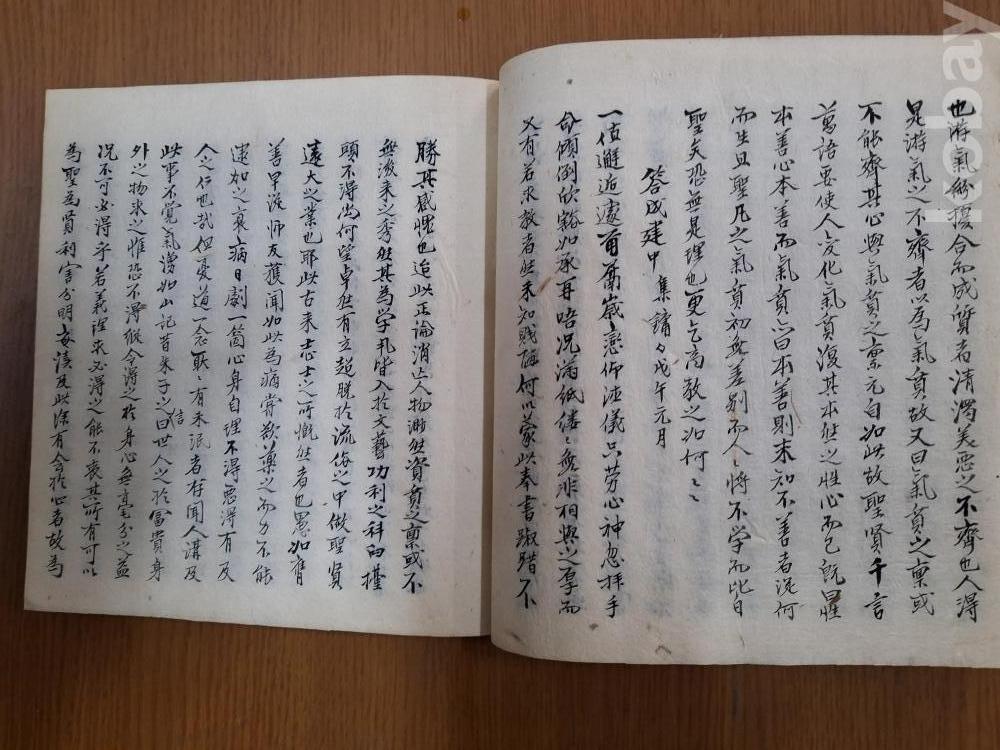 也游氣紛擾合而成質者清濁美惡之不齊也人得
是游氣之不齊者以爲氣質故又曰氣質之稟或
不能齊其心與氣質之稟元自如此故聖賢千言
萬語要使人変化氣質復其本然之性心而已旣曰
本善心本善而氣質亦曰本善則未知不善者從何
而生且聖凡之氣質初無差別而人人將不學而比自
聖矣恐無是理也更乞高敎之如何如何
答成建中 集鏞 戊午元月
一値邂逅遽爾 歲戀仰德儀只勞心神忽拜手
命傾倒欣豁如承再晤况滿紙縷縷無非相與之厚而
又有若求敎者然未知賤 何以蒙此奉書踧踖不
勝其感懼也追此正論消亡人物渺然資質之稟或不
無後來之秀然其爲学 皆入於文藝功利之科臼擡
頭不得尙何望卓然有立超脫於流俗之中做聖賢
遠大之業也耶此古來志士之所慨然者也愚如有
善早從師友獲聞如此爲病嘗欲藥之而力不能
逮加之衰病日劇一箇心身自理不得惡得有及
人之仁也哉但憂道一念耿耿有未泯者有聞人講及
此事不覺氣湧如山記昔朱子之言曰世人之於富貴身
外之物求之惟恐不得縱令得之於身心無毫分之益
况不可必得乎若義理求必得之能不喪其所有可以
爲聖爲賢利害分明 讀及此徐有会於心者故爲